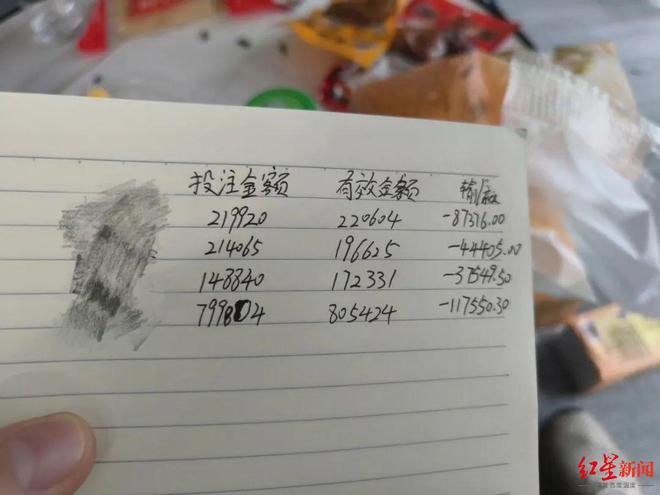 投注金额 有效金额 输赢
219920 220604 -87316.00
214065 196625 -44405.00
148840 172331 -37549.50
799804 805424 -117550.30
红星新闻